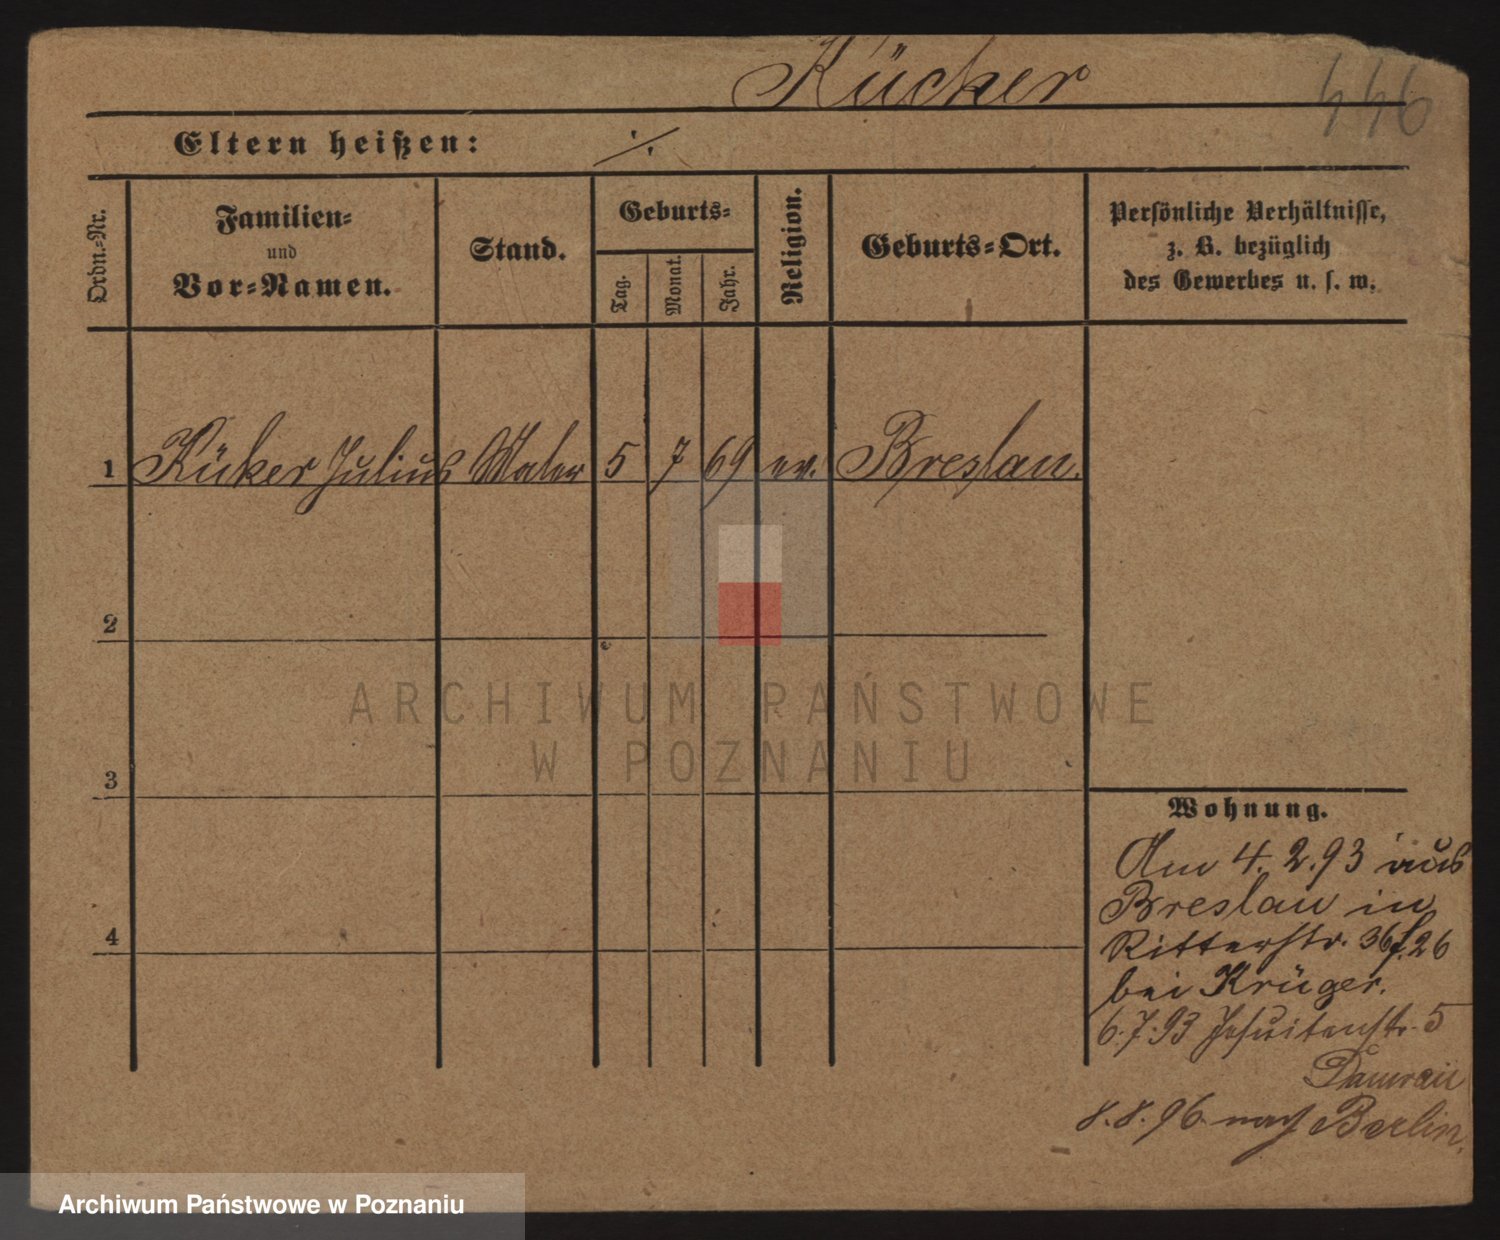 Kücker
446
Eltern heißen: ·/·
Ordn.-Nr.
Familien-
und
Vor-Namen.
Stand.
Geburts-
Tag.
Monat.
Jahr.
Religion.
Geburts-Ort.
Persönliche Verhältnisse,
z. B. bezüglich
des Gewerbes u. s. w.
1 Küker Julius Maler 5 7 69 ev. Breslau.
2
3
4
ARCHIWUM PAŃSTWOWE
W POZNANIU
Wohnung.
Am 4.2.93 aus
Breslau in
Ritterstr. 36 26
bei Krüger.
6.7.93 Jesuitenstr. 5
8.8.96 nach Berlin.
Archiwum Państwowe w Poznaniu